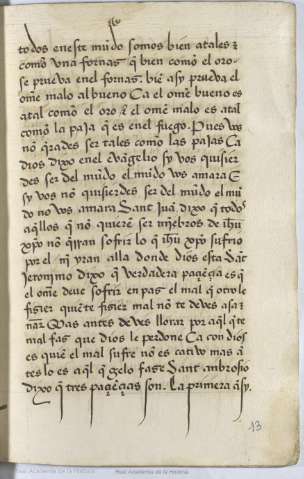 todos eneste mũdo somos bien atales ⁊
como vna fornas q̃ bien como el oro
se prueva enel fornas. biẽ asy prueva el
om̃e malo al bueno Ca el om̃e bueno es
atal como el oro ⁊ el om̃e malo es atal
como la paja q̃ es enel fuego. Pues vos
nõ q̃rades ser tales como las pajas Ca
dios dixo enel evãgelio sy vos quisier
des ser del mũdo el mũdo vos amara E
sy vos nõ quisierdes ser del mũdo el mũ
do nõ vos amara Sant iuã dixo q̃ todos
aq̃llos q̃ nõ quierẽ ser mĩebros de ihũ
xp̃o nõ q̃rran sofrir lo q̃ ihũ xp̃o sufrio
por el nĩ yran alla donde dios esta Sãt
Jeronimo dixo q̃ verdadera paçẽçia es q̃
el om̃e deve sofrir en pas el mal q̃ otro le
fisier quiẽte fisier mal nõ te deves
Mas antes deves llorar por aq̃l q̃ te
mal fas que dios le perdone Ca con dios
es quiẽ el mal sufre nõ es cativo mas ã
tes lo es aq̃l q̃ gelo fase Sant ambrosio
dixo q̃ tres paçẽçias son. La primera asy.
13
Real Academia de la Historia
Real Academia de la Historia